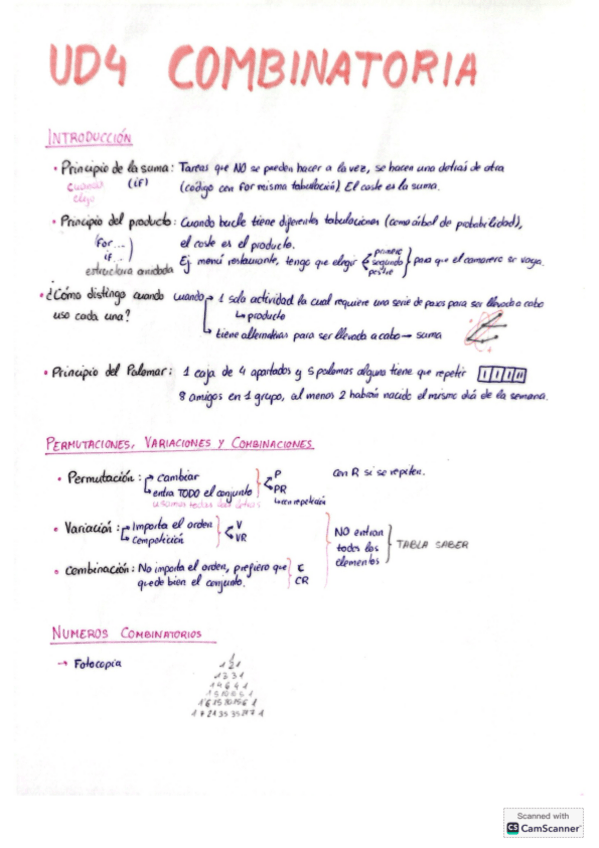 UD4 COMBINATORIA
INTRODUCCIÓN
• Principio de la suma: Tareas que NO se pueden hacer a la vez, se hacen una detrás de otra
cuando (if) (código con for misma tabulación). El coste es la suma.
elijo
• Principio del producto: Cuando bucle tiene diferentes tabulaciones (como árbol de probabilidad),
for... el coste es el producto.
if... Ej menú restaurante, tengo que elegir primero segundo postre para que el camarero se vaya.
estructura anidada
• ¿Cómo distingo cuando cuando → 1 sola actividad la cual requiere una serie de pasos para ser llevado a cabo
uso cada una? ↳ producto
↳ tiene alternativas para ser llevado a cabo → suma
• Principio del Palomar: 1 caja de 4 apartados y 5 palomas alguna tiene que repetir
8 amigos en 1 grupo, al menos 2 habrán nacido el mismo día de la semana.
PERMUTACIONES, VARIACIONES Y COMBINACIONES
• Permutación: → cambiar P con R si se repiten.
↳ entra TODO el conjunto PR
↳ con repetición
• Variación: → Importa el orden V
↳ competición VR
NO entran todos los elementos TABLA SABER
• Combinación: No importa el orden, prefiero que C
quede bien el conjunto. CR
NUMEROS COMBINATORIOS
→ Fotocopia
1
1 2 1
1 3 3 1
1 4 6 4 1
Scanned with
CS CamScanner